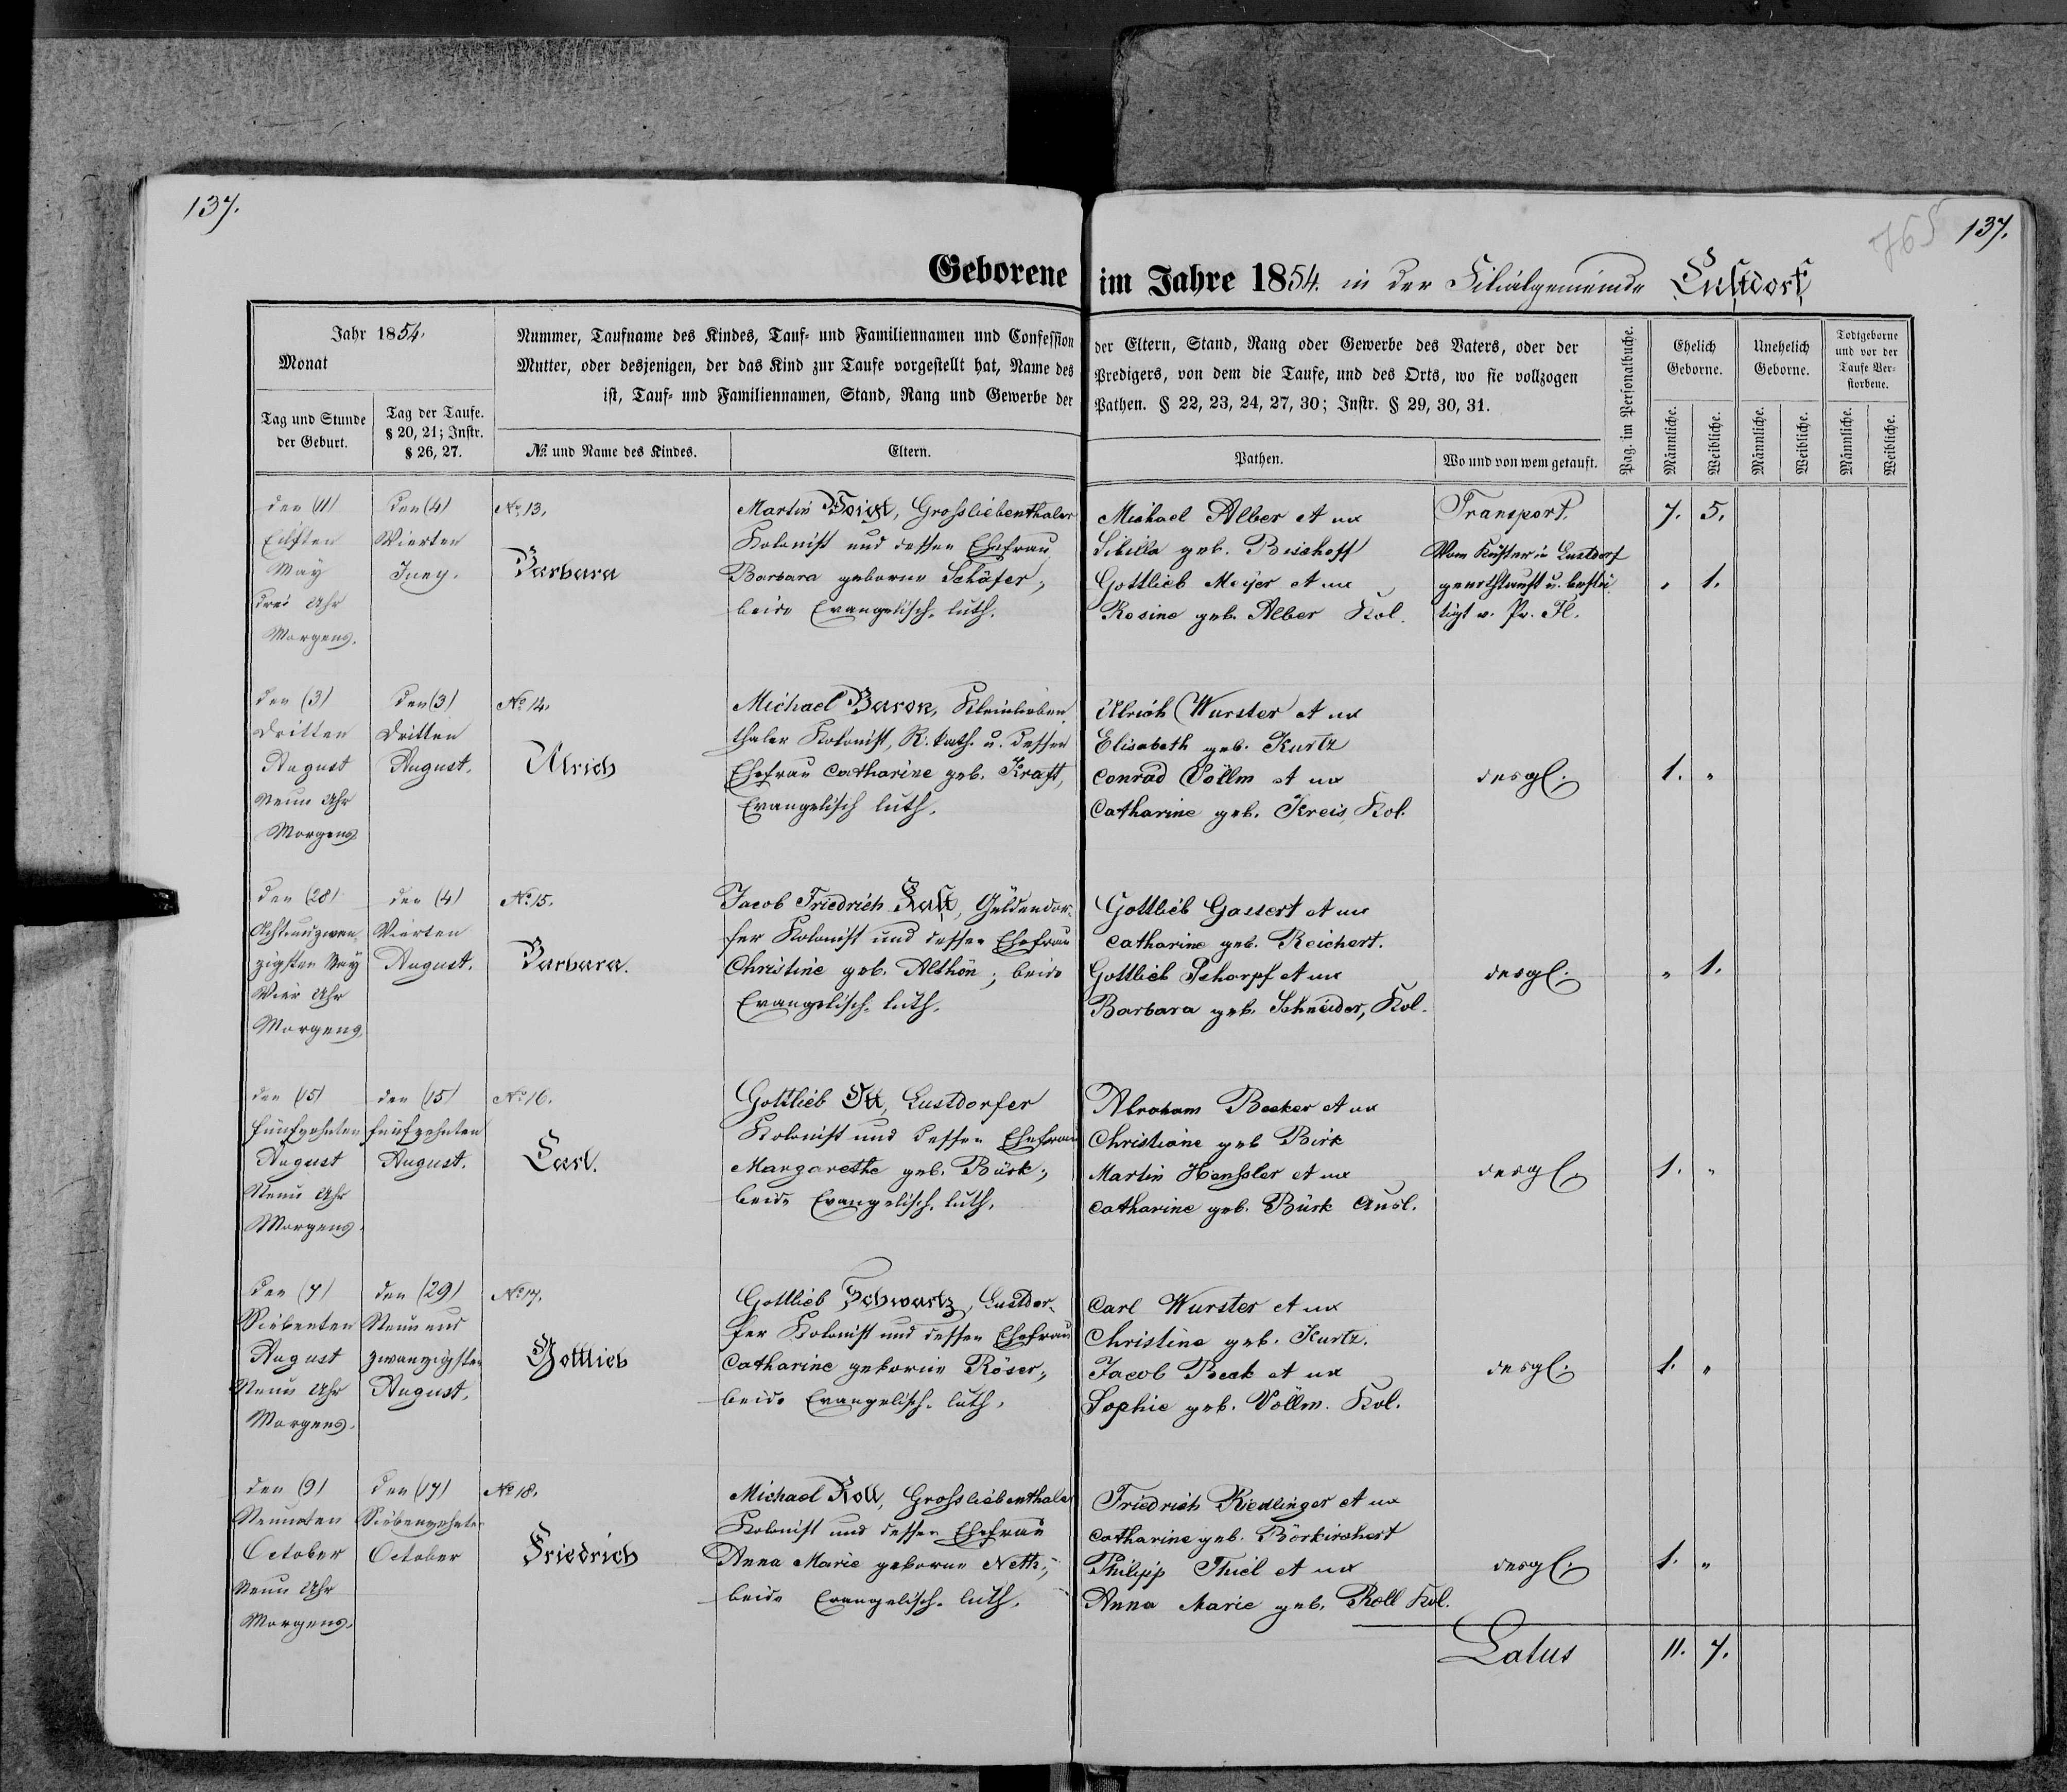 137.
765 137.
Geborene im Jahre 1854. in der Filialgemeinde Lustdorf
Jahr 1854.
Monat
Tag und Stunde der Geburt.
Tag der Taufe. § 20, 21; Instr. § 26, 27.
Nummer, Taufname des Kindes, Tauf- und Familiennamen und Confession der Eltern, Stand, Rang oder Gewerbe des Vaters, oder der
Mutter, oder desjenigen, der das Kind zur Taufe vorgestellt hat, Name des Predigers, von dem die Taufe, und des Orts, wo sie vollzogen
ist, Tauf- und Familiennamen, Stand, Rang und Gewerbe der Pathen. § 22, 23, 24, 27, 30; Instr. § 29, 30, 31.
№ und Name des Kindes.
Eltern.
Pathen.
Wo und von wem getauft.
Pag. im Personalbuche.
Ehelich Geborne.
Unehelich Geborne.
Todtgeborne und vor der Taufe Verstorbene.
Männliche. Weibliche. Männliche. Weibliche. Männliche. Weibliche.
Transport. 7. 5.
den (11)
Eilften
May
drei Uhr
Morgens.
den (4)
Vierten
Juny.
No. 13.
Barbara
Martin Voigt, Grossliebenthaler
Kolonist und dessen Ehefrau
Barbara geborne Schäfer,
beide Evangelisch-luth.
Michael Alber et ux
Sibilla geb. Bischoff
Gottlieb Meyer et ux
Rosine geb. Alber Kol.
Vom Küster in Lustdorf
genothtauft u. bestä
tigt v. Pr. Fl.
" 1.
den (3)
Dritten
August
Neun Uhr
Morgens
den (3)
Dritten
August.
No. 14.
Ulrich
Michael Baron, Kleinlieben
thaler Kolonist, R. kath. u. dessen
Ehefrau Catharine geb. Kraft,
Evangelisch luth.
Ulrich Wurster et ux
Elisabeth geb. Kurtz
Conrad Völlm et ux
Catharine geb. Kreis, Kol.
desgl.
1. "
den (28)
Achtundzwan
zigsten May
Vier Uhr
Morgens.
den (4)
Vierten
August.
No. 15.
Barbara.
Jacob Friedrich
Güldendor-
fer Kolonist und dessen Ehefrau
Christine geb. Althön; beide
Evangelisch-luth.
Gottlieb Gassert et ux
Catharine geb. Reichert.
Gottlieb Scharpf et ux
Barbara geb. Schneider, Kol.
desgl.
" 1.
den (15)
fünfzehnten
August
Neun Uhr
Morgens.
den (15)
fünfzehnten
August.
No. 16.
Carl.
Gottlieb Ott, Lustdorfer
Kolonist und dessen Ehefrau
Margarethe geb. Bürk,
beide Evangelisch-luth.
Abraham Becker et ux
Christiane geb Birk
Martin Henssler et ux
Catharine geb. Bürk Ausl.
desgl.
1. "
den (7)
Siebenten
August
Neun Uhr
Morgens.
den (29)
Neunund
zwanzigsten
August.
No. 17.
Gottlieb
Gottlieb Schwartz, Lustdor-
fer Kolonist und dessen Ehefrau
Catharine geborne Röser,
beide Evangelisch-luth.
Carl Wurster et ux
Christine geb. Kurtz.
Jacob Beck et ux
Sophie geb. Völlm. Kol.
desgl.
1. "
den (9)
Neunten
October
Neun Uhr
Morgens.
den (17)
Siebenzehnten
October
No. 18.
Friedrich
Michael Roll, Grossliebenthaler
Kolonist und dessen Ehefrau
Anna Marie geborne Neth,
beide Evangelisch-luth.
Friedrich Riedlinger et ux
Catharine geb. Börkirchert
Philipp Thiel et ux
Anna Marie geb. Roll Kol.
desgl.
1. "
Latus 11. 7.